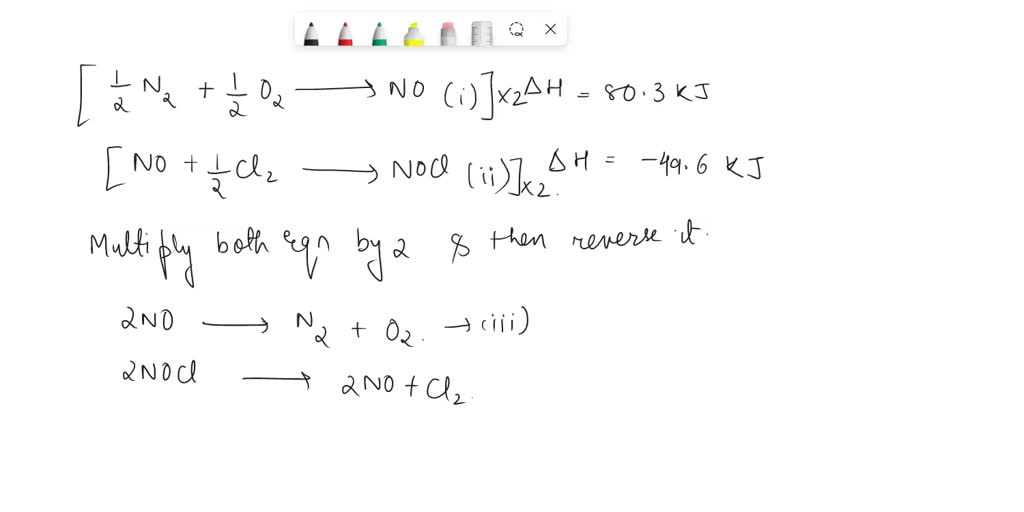 [½ N₂ + ½ O₂ ⟶ NO (i)]×2 ΔH = 80.3 KJ
[NO + ½ Cl₂ ⟶ NOCl (ii)]×2. ΔH = -49.6 KJ
Multiply both eqn by 2 & then reverse it.
2NO ⟶ N₂ + O₂. → (iii)
2NOCl ⟶ 2NO + Cl₂.